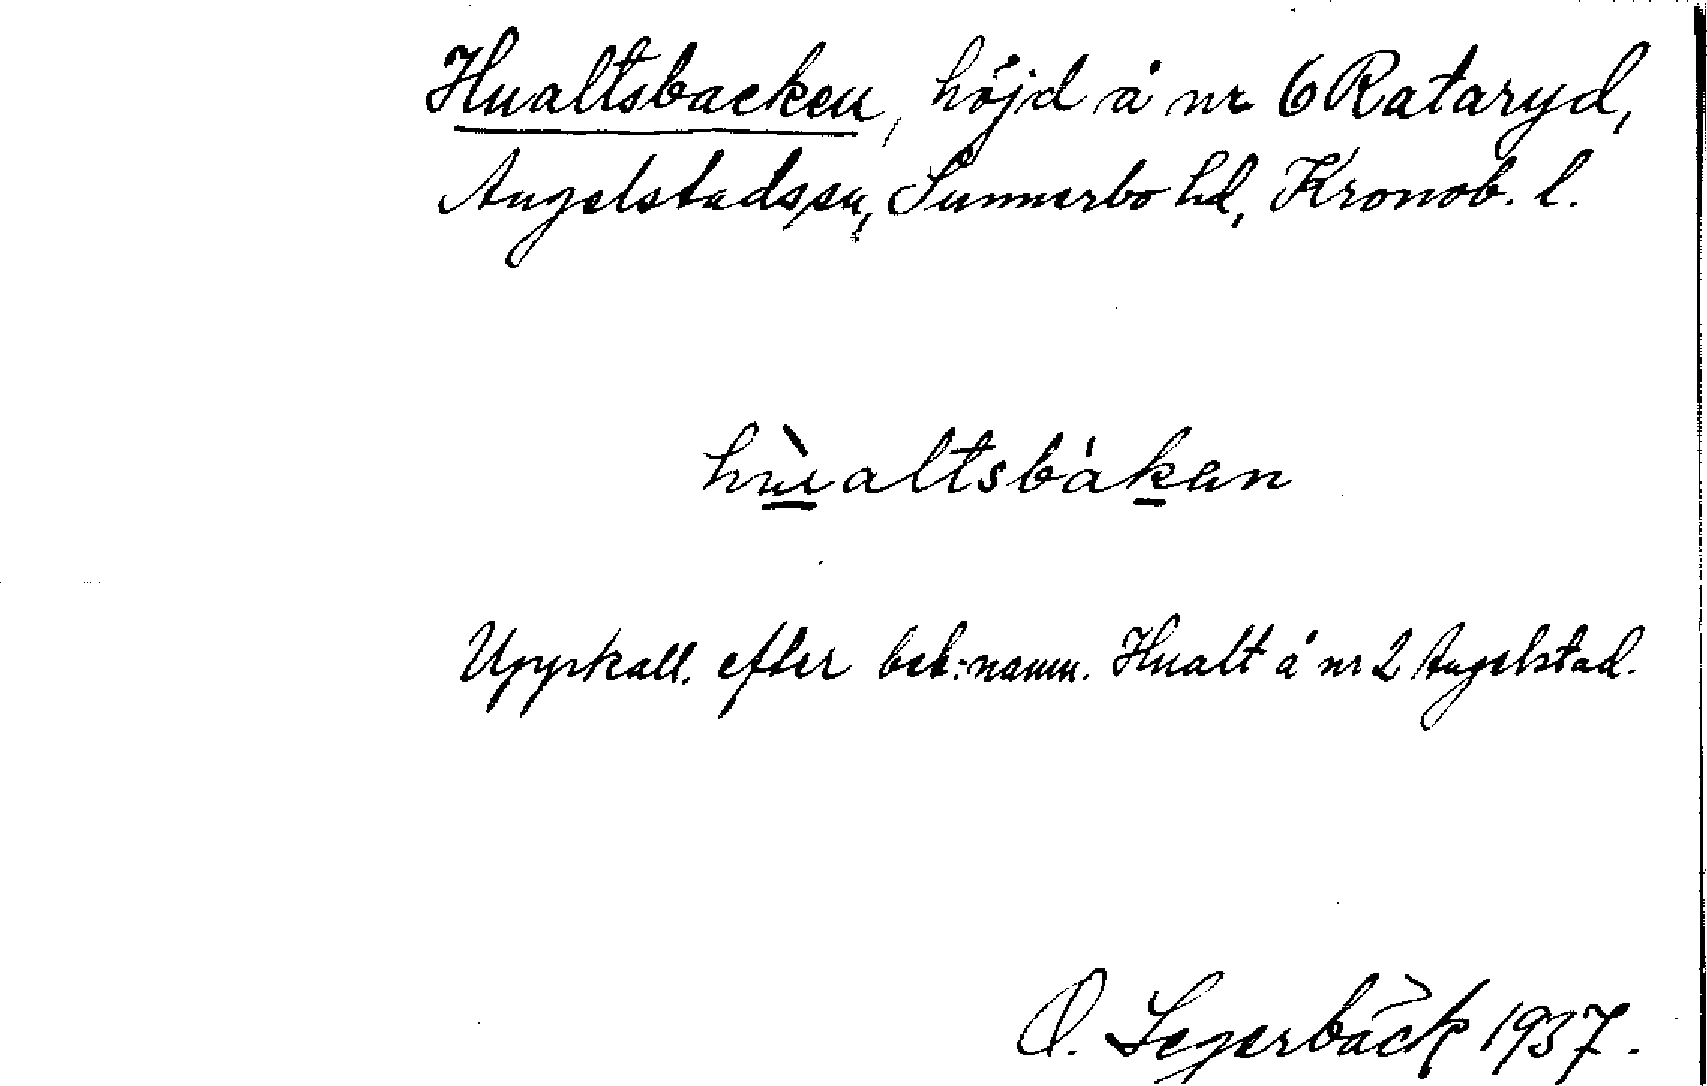 Hualtsbacken, höjd å nr 6 Rataryd,
Angelstads sn, Sunnerbo hd, Kronob. l.
hùaltsbákan
Uppkall. efter beb:namn. Hualt å nr 2 Angelstad.
O. Segerbäck 1937.